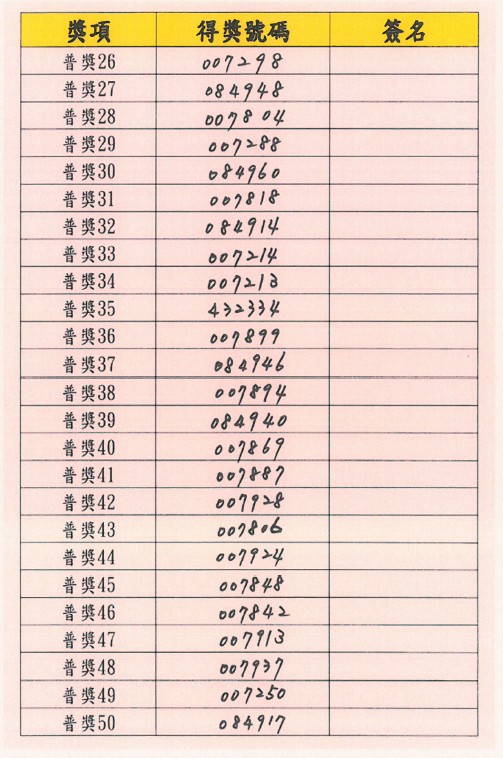 獎項 得獎號碼 簽名
普獎26 007298
普獎27 084948
普獎28 007804
普獎29 007288
普獎30 084960
普獎31 007818
普獎32 084914
普獎33 007214
普獎34 007213
普獎35 432334
普獎36 007899
普獎37 084946
普獎38 007894
普獎39 084940
普獎40 007869
普獎41 007887
普獎42 007928
普獎43 007806
普獎44 007924
普獎45 007848
普獎46 007842
普獎47 007913
普獎48 007937
普獎49 007250
普獎50 084917